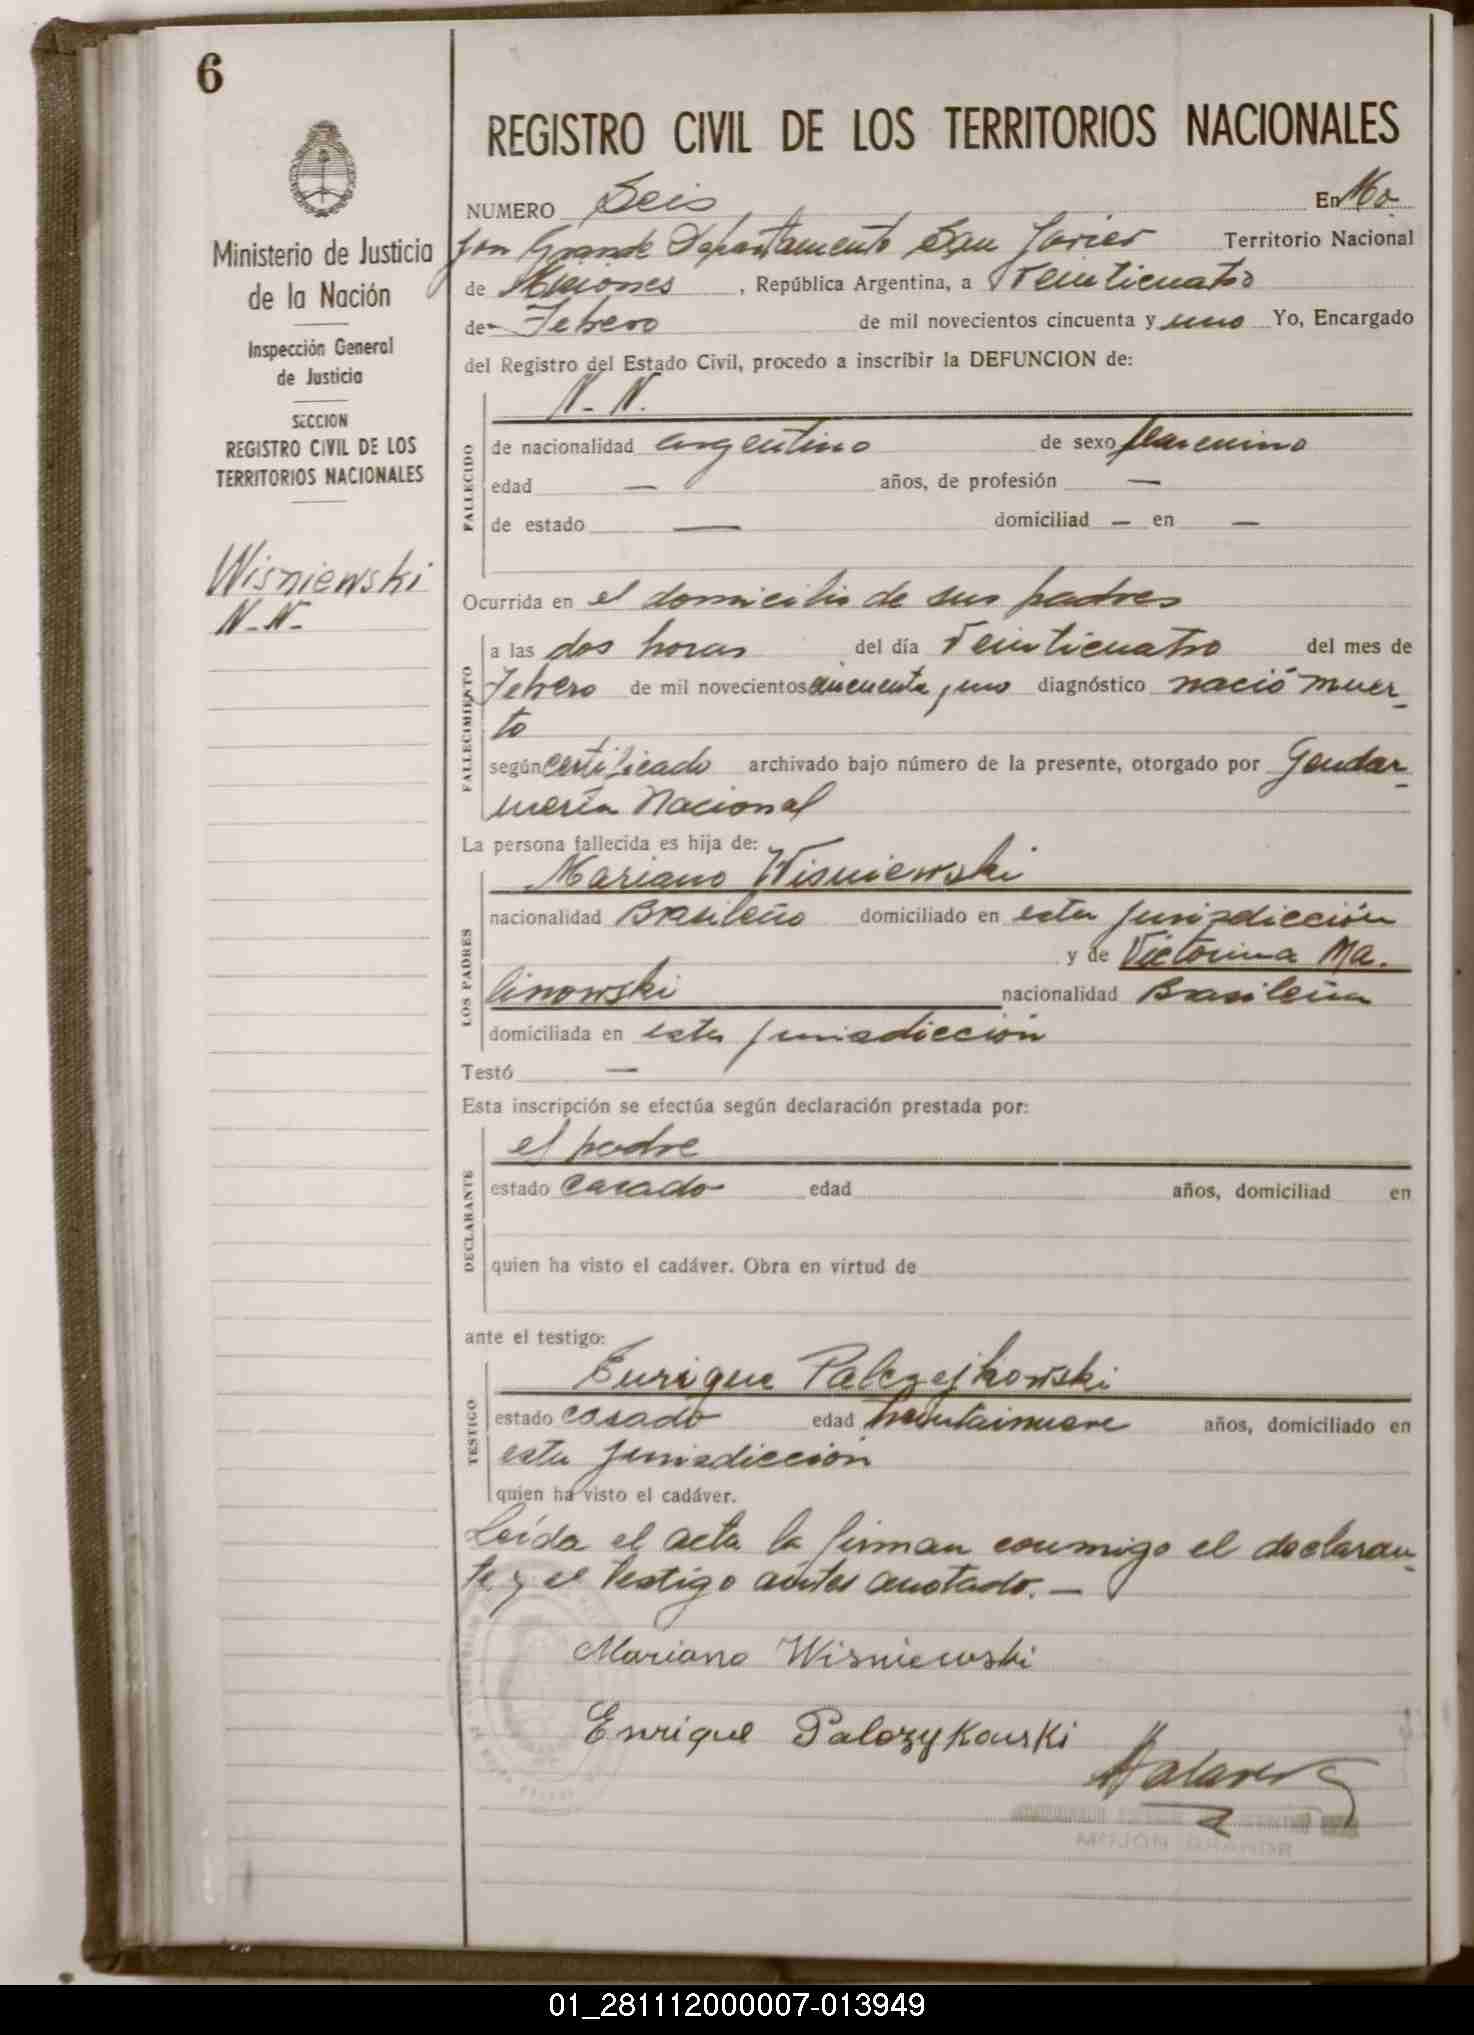 6
REGISTRO CIVIL DE LOS TERRITORIOS NACIONALES
Ministerio de Justicia
de la Nación
Inspección General
de Justicia
SECCION
REGISTRO CIVIL DE LOS
TERRITORIOS NACIONALES
Wisniewski
N-N-
NUMERO Seis En Mo
jon Grande Departamento San Javier Territorio Nacional
de Misiones, República Argentina, a Veinticuatro
de Febrero de mil novecientos cincuenta y uno Yo, Encargado
del Registro del Estado Civil, procedo a inscribir la DEFUNCION de:
N. N.
FALLECIDO
de nacionalidad argentino de sexo femenino
edad — años, de profesión —
de estado — domiciliad — en —
Ocurrida en el domicilio de sus padres
FALLECIMIENTO
a las dos horas del día Veinticuatro del mes de
Febrero de mil novecientos cincuenta y uno diagnóstico nació muer-
to
según certificado archivado bajo número de la presente, otorgado por Gendar-
mería Nacional
La persona fallecida es hija de:
LOS PADRES
Mariano Wisniewski
nacionalidad Brasileño domiciliado en esta jurisdicción
y de Victorina Ma.
linowski nacionalidad Brasileña
domiciliada en esta jurisdicción
Testó —
Esta inscripción se efectúa según declaración prestada por:
DECLARANTE
el padre
estado casado edad años, domiciliad en
quien ha visto el cadáver. Obra en virtud de
ante el testigo:
TESTIGO
Enrique Palczejkowski
estado casado edad treintainueve años, domiciliado en
esta jurisdicción
quien ha visto el cadáver.
Leída el acta la firman conmigo el declaran-
te y el testigo antes anotado. —
Mariano Wisniewski
Enrique Palczykowski
01_281112000007-013949